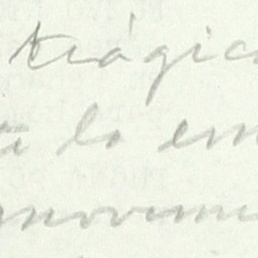 trágic
a lo em
movimi